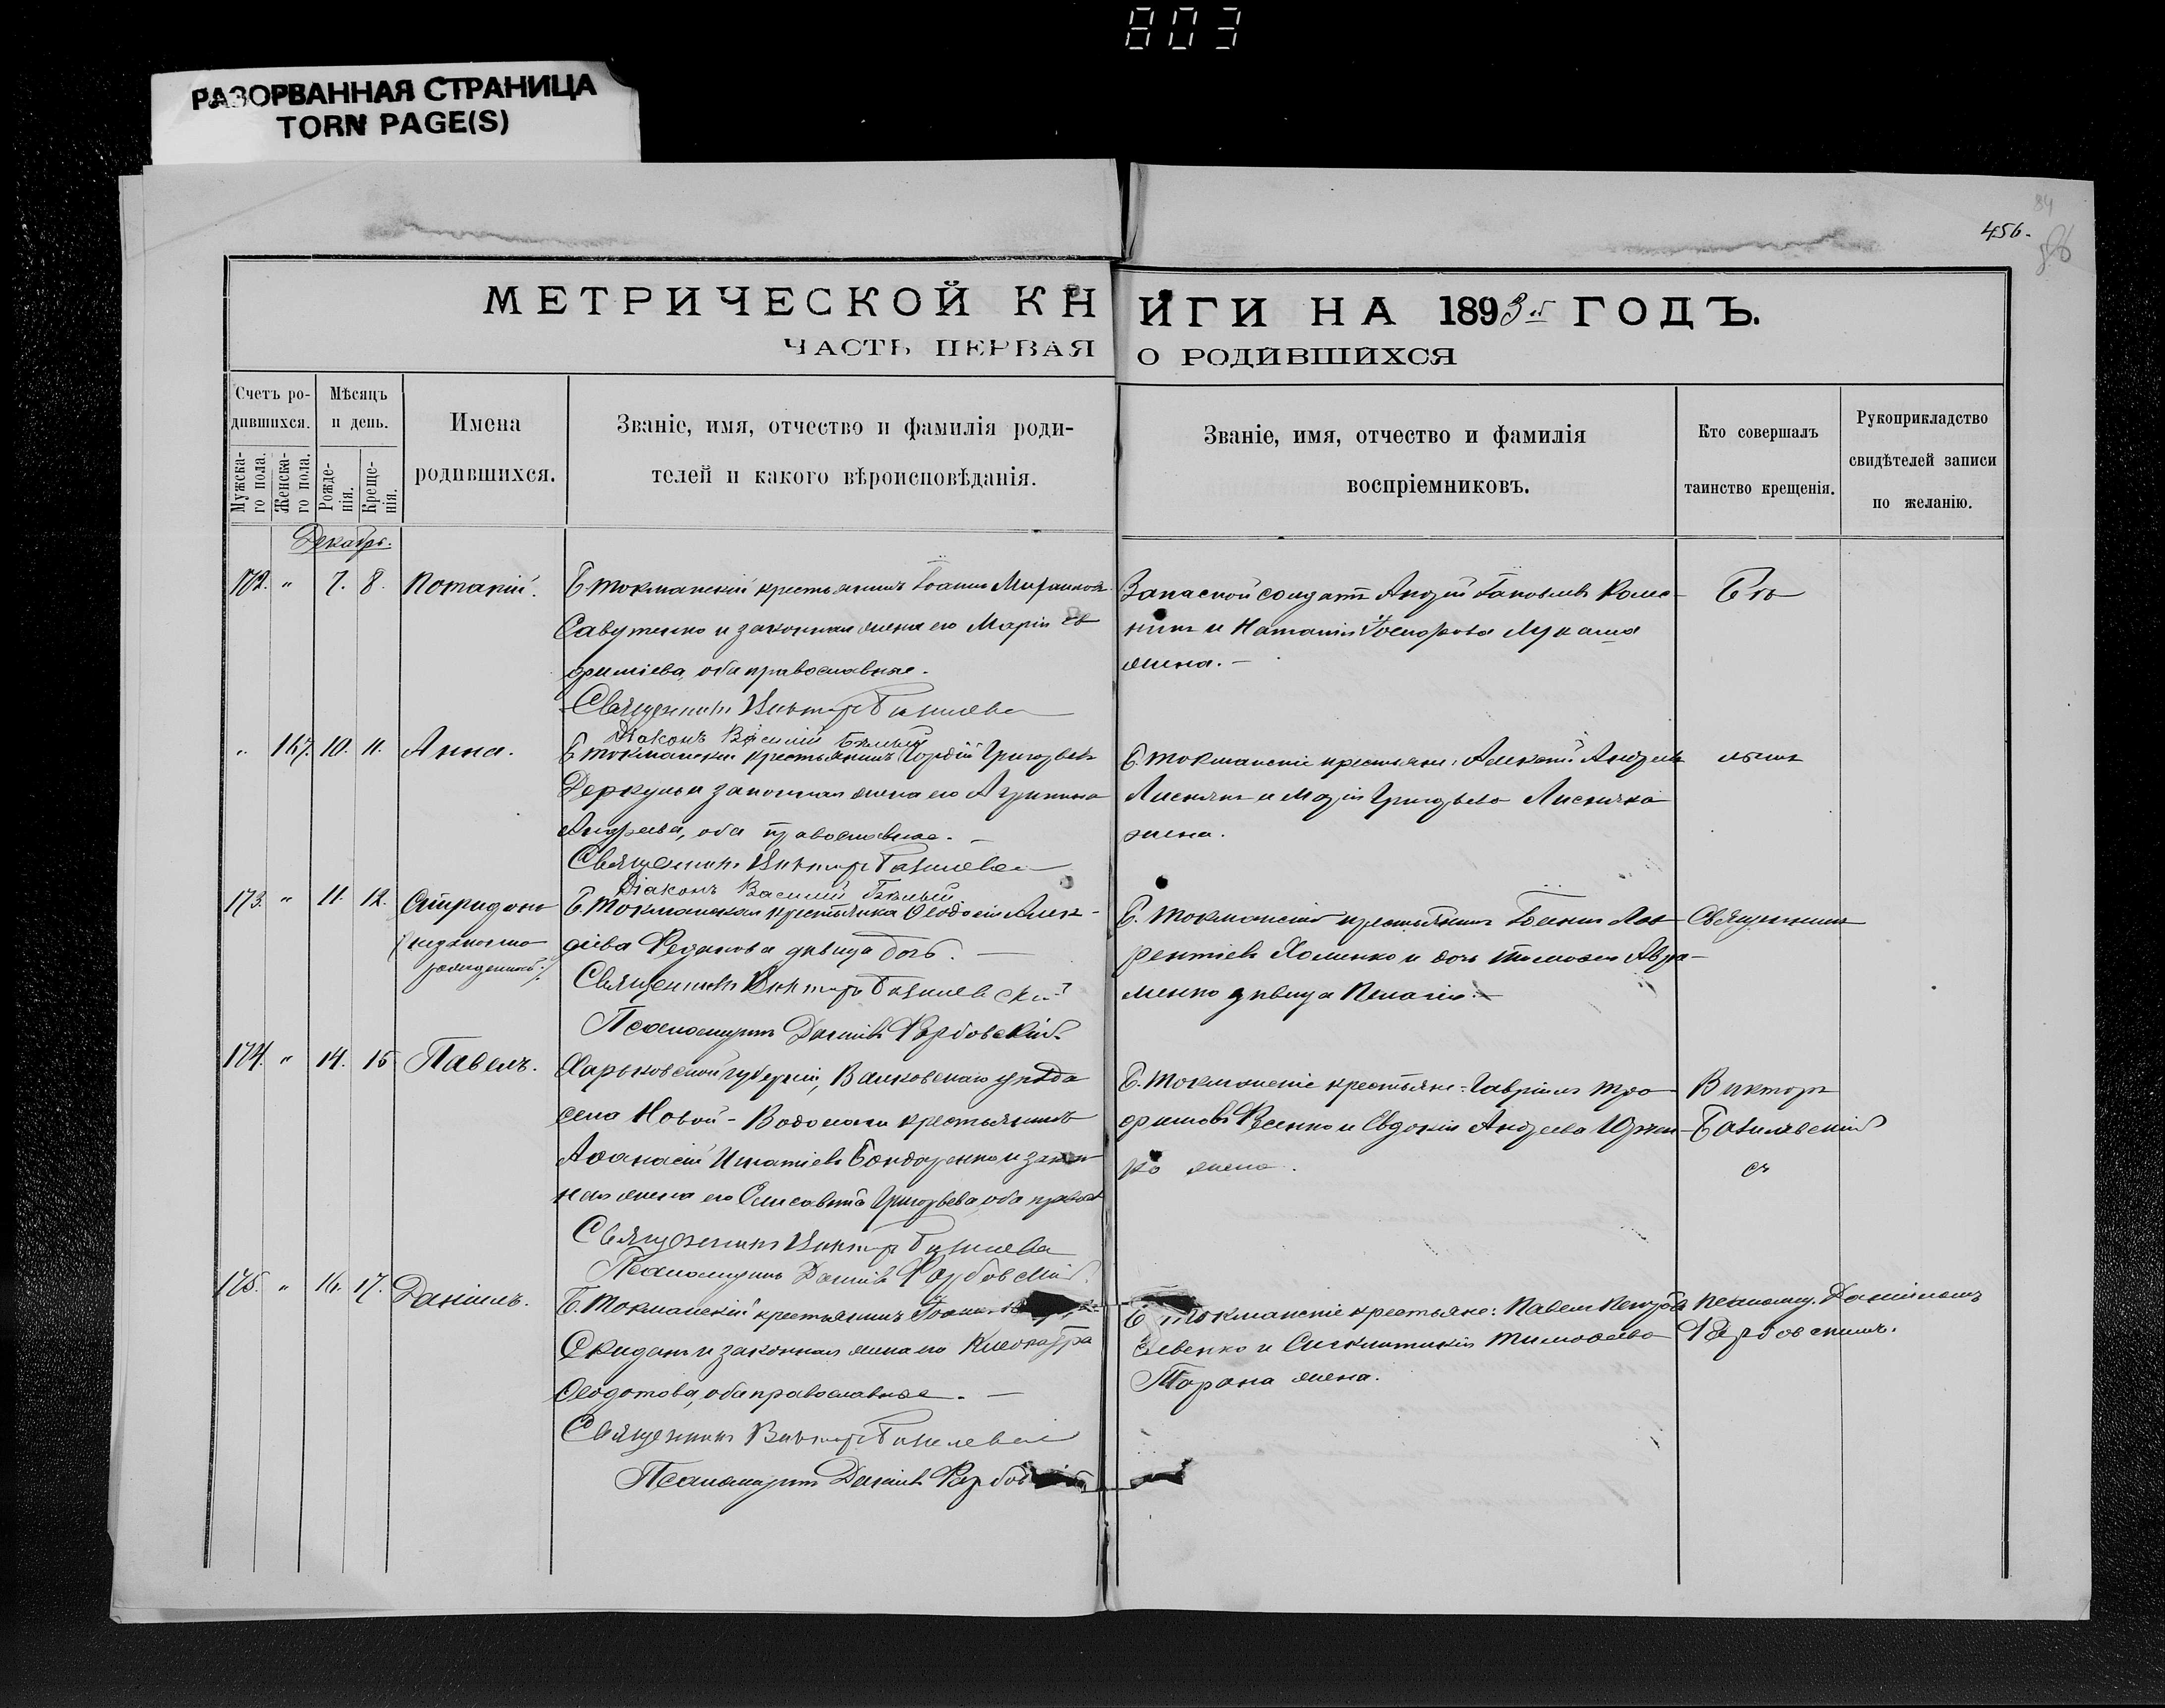 803
РАЗОРВАННАЯ СТРАНИЦА
TORN PAGE(S)
84
456.
86
МЕТРИЧЕСКОЙ КНИГИ НА 1893й ГОДЪ.
ЧАСТЬ ПЕРВАЯ О РОДИВШИХСЯ
Счетъ ро-
дившихся.
Мѣсяцъ
и день.
Мужска-
го пола.
Женска-
го пола.
Рожде-
нія.
Креще-
нія.
Имена
родившихся.
Званіе, имя, отчество и фамилія роди-
телей и какого вѣроисповѣданія.
Званіе, имя, отчество и фамилія
воспріемниковъ.
Кто совершалъ
таинство крещенія.
Рукоприкладство
свидѣтелей записи
по желанію.
Декабрь.
172. " 7. 8. Потапій.
Б. Токмакскій крестьянинъ Іоаннъ
Савутенко и законная жена его Марія Ев-
фиміева, оба православные.
Священникъ Викторъ Базилевск
Діаконъ Василій Бѣлый
Запасной солдатъ Андрей Іаковлевъ Колес-
никъ и Наталія Лукаша
жена.
" 167. 10. 11. Анна.
Б. Токмакскій крестьянинъ Гордій Григорьевъ
Деркулъ и законная жена его Агрипина
Андреева, оба православные.
Священникъ Викторъ Базилевск
Діаконъ Василій Бѣлый
Б. Токмакскіе крестьяне: Алексѣй Андреевъ
Лиснякъ и Марія Григорьева Лисняка
жена.
173. " 11. 12. Спиридонъ
(незаконно
рожденный)
Б. Токмакская крестьянка Ѳеодосія Алек-
сіева дѣвица дочь.
Священникъ Викторъ Базилевскій
Псаломщикъ Даніилъ Фарбовскій
Б. Токмакскій крестьянинъ Іоаннъ Лав-
рентіевъ Хоменко и дочь Тимоѳея Авра-
менко дѣвица Пелагія.
Священникъ
174. " 14. 15 Павелъ.
Харьковской губерніи, Валковскаго уѣзда
села Новой-Водолаги крестьянинъ
Аѳанасій Игнатіевъ Бондаренко и закон-
ная жена его Елисавета Григорьева, оба правосл
Священникъ Викторъ Базилевск
Псаломщикъ Даніилъ Фарбовскій
Б. Токмакскіе крестьяне: Гавріилъ Тро-
фимовъ и Евдокія Андреева
ко жена.
Викторъ
Базилевскій
съ
175. " 16. 17. Даніилъ.
Б. Токмакскій крестьянинъ Іоаннъ
Скиданъ и законная жена его Клеопатра
Ѳеодотова, оба православные.
Священникъ Викторъ Базилевск
Псаломщикъ Даніилъ Фарбовскій
Б. Токмакскіе крестьяне: Павелъ Петровъ
и Синклитикія Тимоѳеева
Тарана жена.
псаломщ. Даніиломъ
Фарбовскимъ.